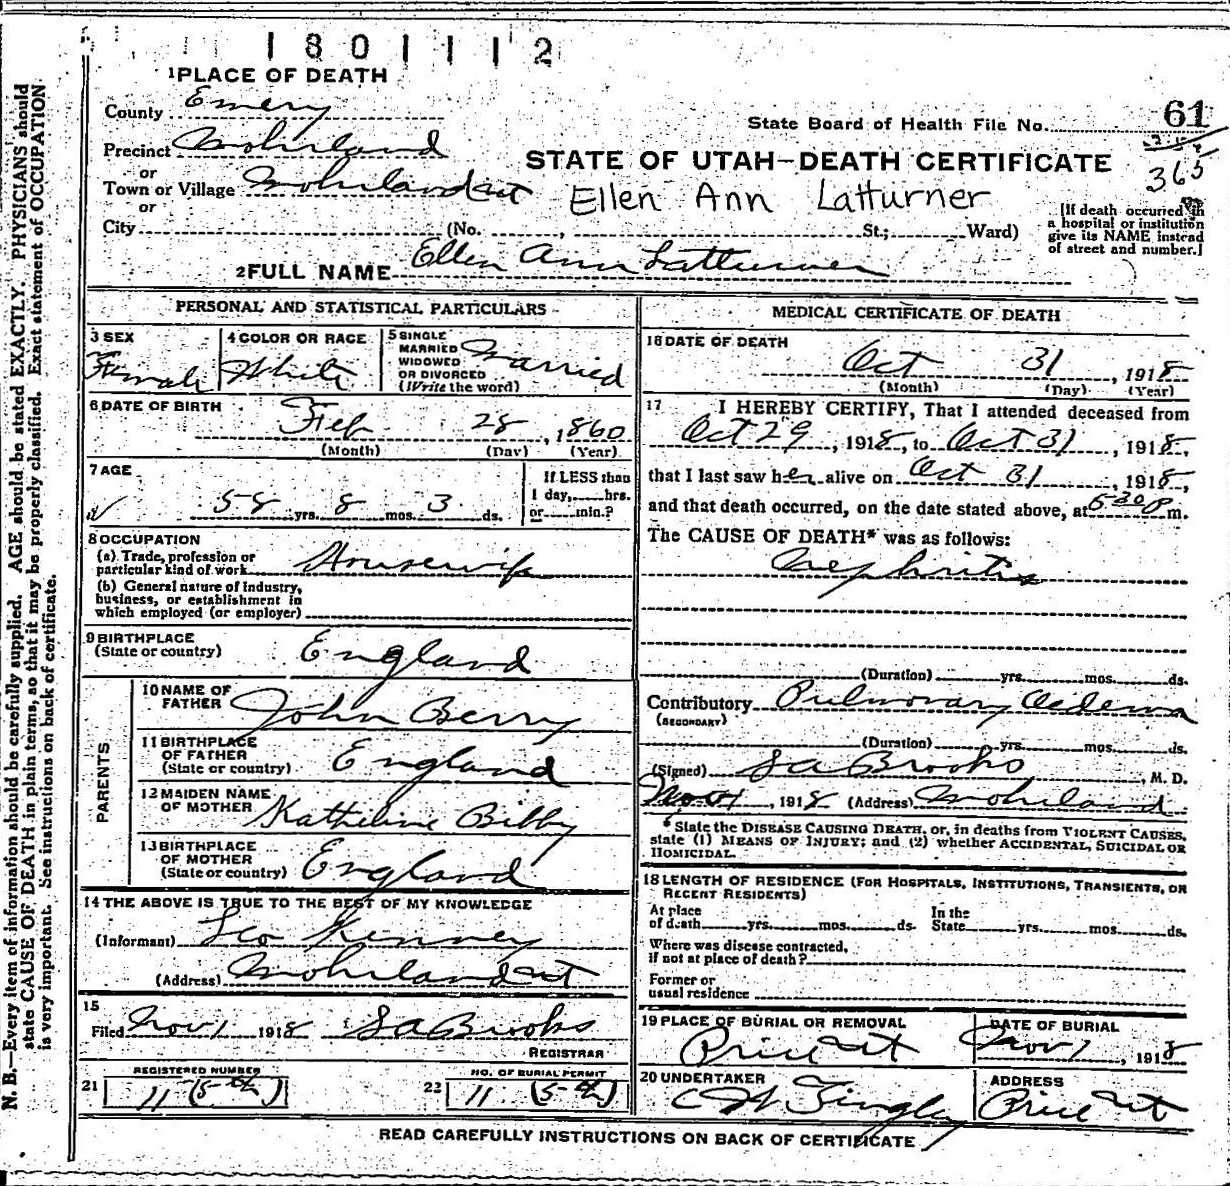 1801112
1 PLACE OF DEATH
County Emery
State Board of Health File No. 61
Precinct Mohrland
365
or
STATE OF UTAH—DEATH CERTIFICATE
Town or Village Mohrland Ut
Ellen Ann Latturner
or
City (No. , St.; Ward)
[If death occuried in
a hospital or institution
give its NAME instead
of street and number.]
2 FULL NAME Ellen Ann Latturner
PERSONAL AND STATISTICAL PARTICULARS
3 SEX
Female
4 COLOR OR RACE
White
5 SINGLE
MARRIED
WIDOWED
OR DIVORCED
(Write the word)
Married
6 DATE OF BIRTH
Feb 28, 1860
(Month) (Day) (Year)
7 AGE
58 yrs. 8 mos. 3 ds.
If LESS than
1 day, hrs.
or min.?
8 OCCUPATION
(a) Trade, profession or
particular kind of work Housewife
(b) General nature of industry,
business, or establishment in
which employed (or employer)
9 BIRTHPLACE
(State or country) England
PARENTS
10 NAME OF
FATHER John Berry
11 BIRTHPLACE
OF FATHER
(State or country) England
12 MAIDEN NAME
OF MOTHER Katherine Bibby
13 BIRTHPLACE
OF MOTHER
(State or country) England
14 THE ABOVE IS TRUE TO THE BEST OF MY KNOWLEDGE
(Informant) Leo Kinney
(Address) Mohrland Ut
15
Filed Nov 1 1918 S A Brooks
REGISTRAR
21 REGISTERED NUMBER
11 (5th)
22 NO. OF BURIAL PERMIT
11 (5th)
MEDICAL CERTIFICATE OF DEATH
16 DATE OF DEATH
Oct 31, 1918
(Month) (Day) (Year)
17 I HEREBY CERTIFY, That I attended deceased from
Oct 29, 1918, to Oct 31, 1918,
that I last saw her alive on Oct 31, 1918,
and that death occurred, on the date stated above, at 5 30 P m.
The CAUSE OF DEATH* was as follows:
Nephritis
(Duration) yrs. mos. ds.
Contributory Pulmonary Oedema
(SECONDARY)
(Duration) yrs. mos. ds.
(Signed) S A Brooks, M. D.
Nov 1, 1918 (Address) Mohrland
* State the DISEASE CAUSING DEATH, or, in deaths from VIOLENT CAUSES,
state (1) MEANS OF INJURY; and (2) whether ACCIDENTAL, SUICIDAL OR
HOMICIDAL.
18 LENGTH OF RESIDENCE (FOR HOSPITALS, INSTITUTIONS, TRANSIENTS, OR
RECENT RESIDENTS)
At place
of death yrs. mos. ds.
In the
State yrs. mos. ds.
Where was disease contracted,
if not at place of death?
Former or
usual residence
19 PLACE OF BURIAL OR REMOVAL
Price Ut
DATE OF BURIAL
Nov 1, 1918
20 UNDERTAKER
C H Tingley
ADDRESS
Price Ut
READ CAREFULLY INSTRUCTIONS ON BACK OF CERTIFICATE
N. B.—Every item of information should be carefully supplied. AGE should be stated EXACTLY. PHYSICIANS should
state CAUSE OF DEATH in plain terms, so that it may be properly classified. Exact statement of OCCUPATION
is very important. See instructions on back of certificate.